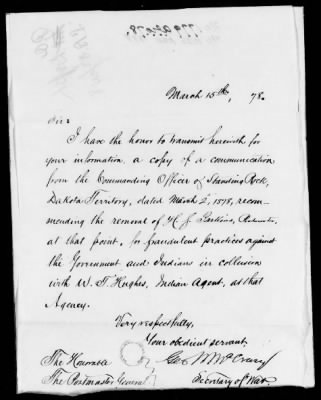 March 15th, 78.
Sir:
I have the honor to transmit herewith for
your information, a copy of a communication
from the Commanding Officer of Standing Rock,
Dakota Territory, dated March 2, 1878, recom-
mending the removal of H. J.
at that point, for fraudulent practices against
the Government and Indians in collusion
with W. T. Hughes, Indian Agent, at that
Agency.
Very respectfully,
Your obedient servant,
Geo W McCrary
Secretary of War.
The Honorable
The Postmaster General